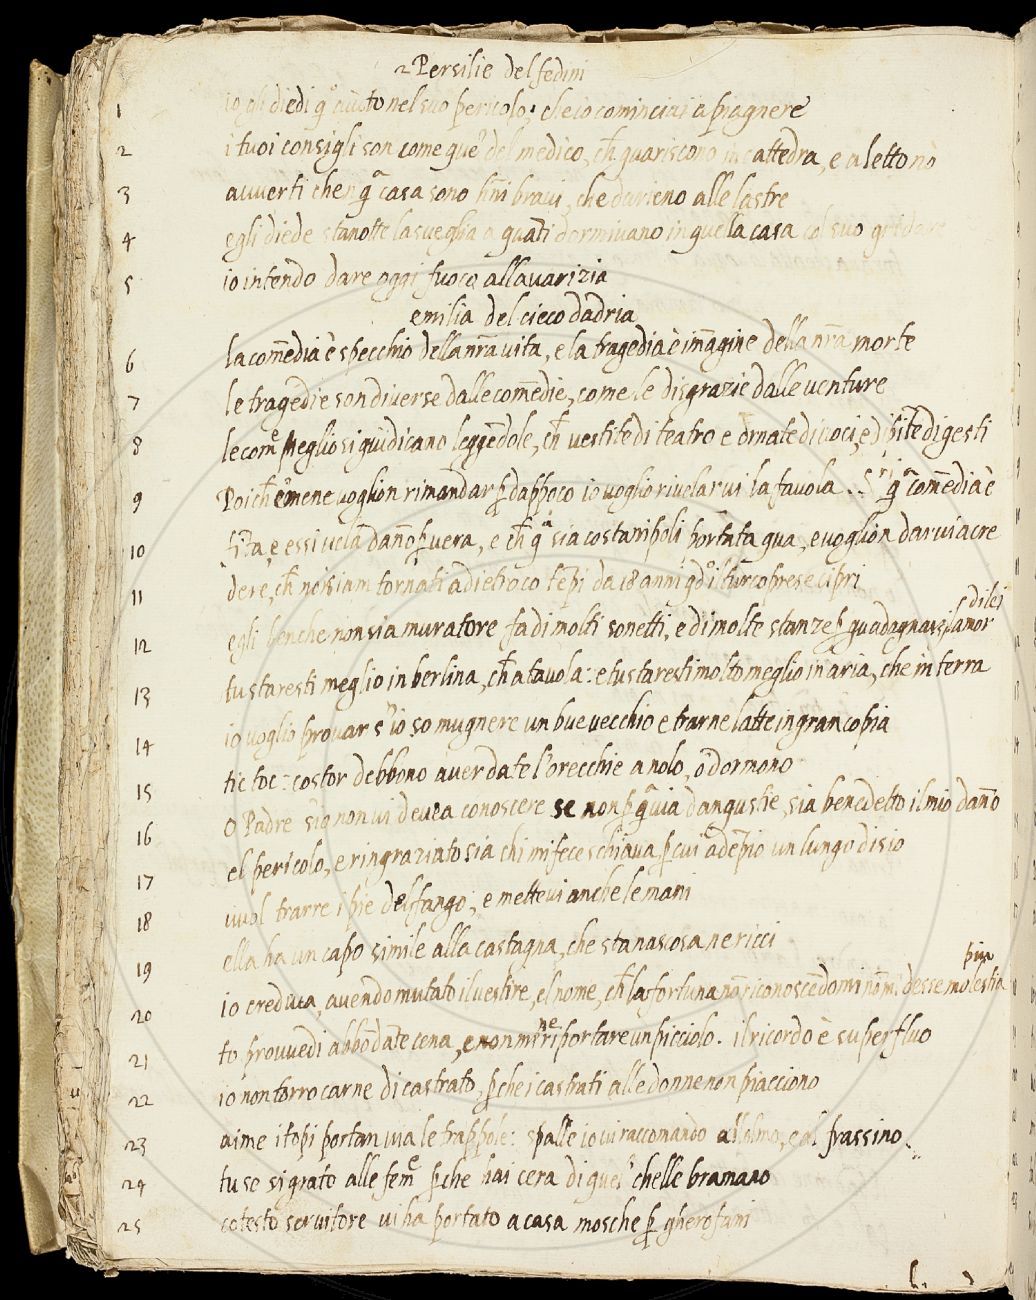 2 Persilie del fedini
1 io gli diedi q͂ aiuto nel suo pericolo, che io cominciai a piagnere
2 i tuoi consigli son come que' del medico, ch̄ guariscono in cattedra, e a letto nò
3 avverti che nq͂ casa sono hm̄i bravi, che darieno alle lastre
4 egli diede stanotte la sveglia a quāti dormivano in quela casa col suo gridare
5 io intendo dare oggi fuoco allavarizia
emilia del cieco dadria
6 la com̄edia è specchio della nr̄a vita, e la tragedia è im̄agine della nr̄a morte
7 le tragedie son diverse dalle com̄edie, come le disgrazie dalle venture
8 le com̄e meglio si giudicano leggēdole, ch̄ vestite di teatro e ornate di voci, e di gesti
9 Poich̄ e' me ne voglion rimandar p̱ dappoco io voglio rivelarvi la favola .. q͂ com̄edia è
10 e essi ve la dañ p̱ vera, e ch̄ q͂ sia costantipoli portata qua, e voglion darvi a cre
11 dere, ch̄ noi siam tornati adietro co tēpi da 18 anni qdo il turco prese cipri
12 egli benche non sia muratore, fa di molti sonetti, e di molte stanze p̱ guadagnarsi lamor di lei
13 tu staresti meglio in berlina, ch̄ a tavola: e tu staresti molto meglio in aria, che in terra
14 io voglio provar s' io so mugnere un bue vecchio e trarne latte in gran copia
15 tic toc: costor debbono aver date l'orecchie a nolo, o dormono
16 O Padre s'io non vi devea conoscere se non p̱ q͂ via dangustie, sia benedetto il mio dañо
17 el pericolo, e ringraziato sia chi mi fece schiava p̱ cui adēpio un lungo disio
18 vuol trarre i pie del fango, e mettevi anche le mani
19 ella ha un capo simile alla castagna, che sta nascosa ne ricci
20 io credeva, avendo mutato il vestire, el nome, ch̄ la fortuna nō riconoscēdomi nō mi desse piu molestia
21 to provvedi abbōdāte cena, e non me ne riportare un picciolo. il ricordo è superfluo
22 io non torro carne di castrato, p̱che i castrati alle donne non piacciono
23 aime i topi portan via le trappole: spalle io vi raccomando all olmo, e al frassino.
24 tu se si grato alle fem̄e p̱che hai cera di quel chelle bramano
25 cotesto servitore vi ha portato a casa mosche p̱ gherofani